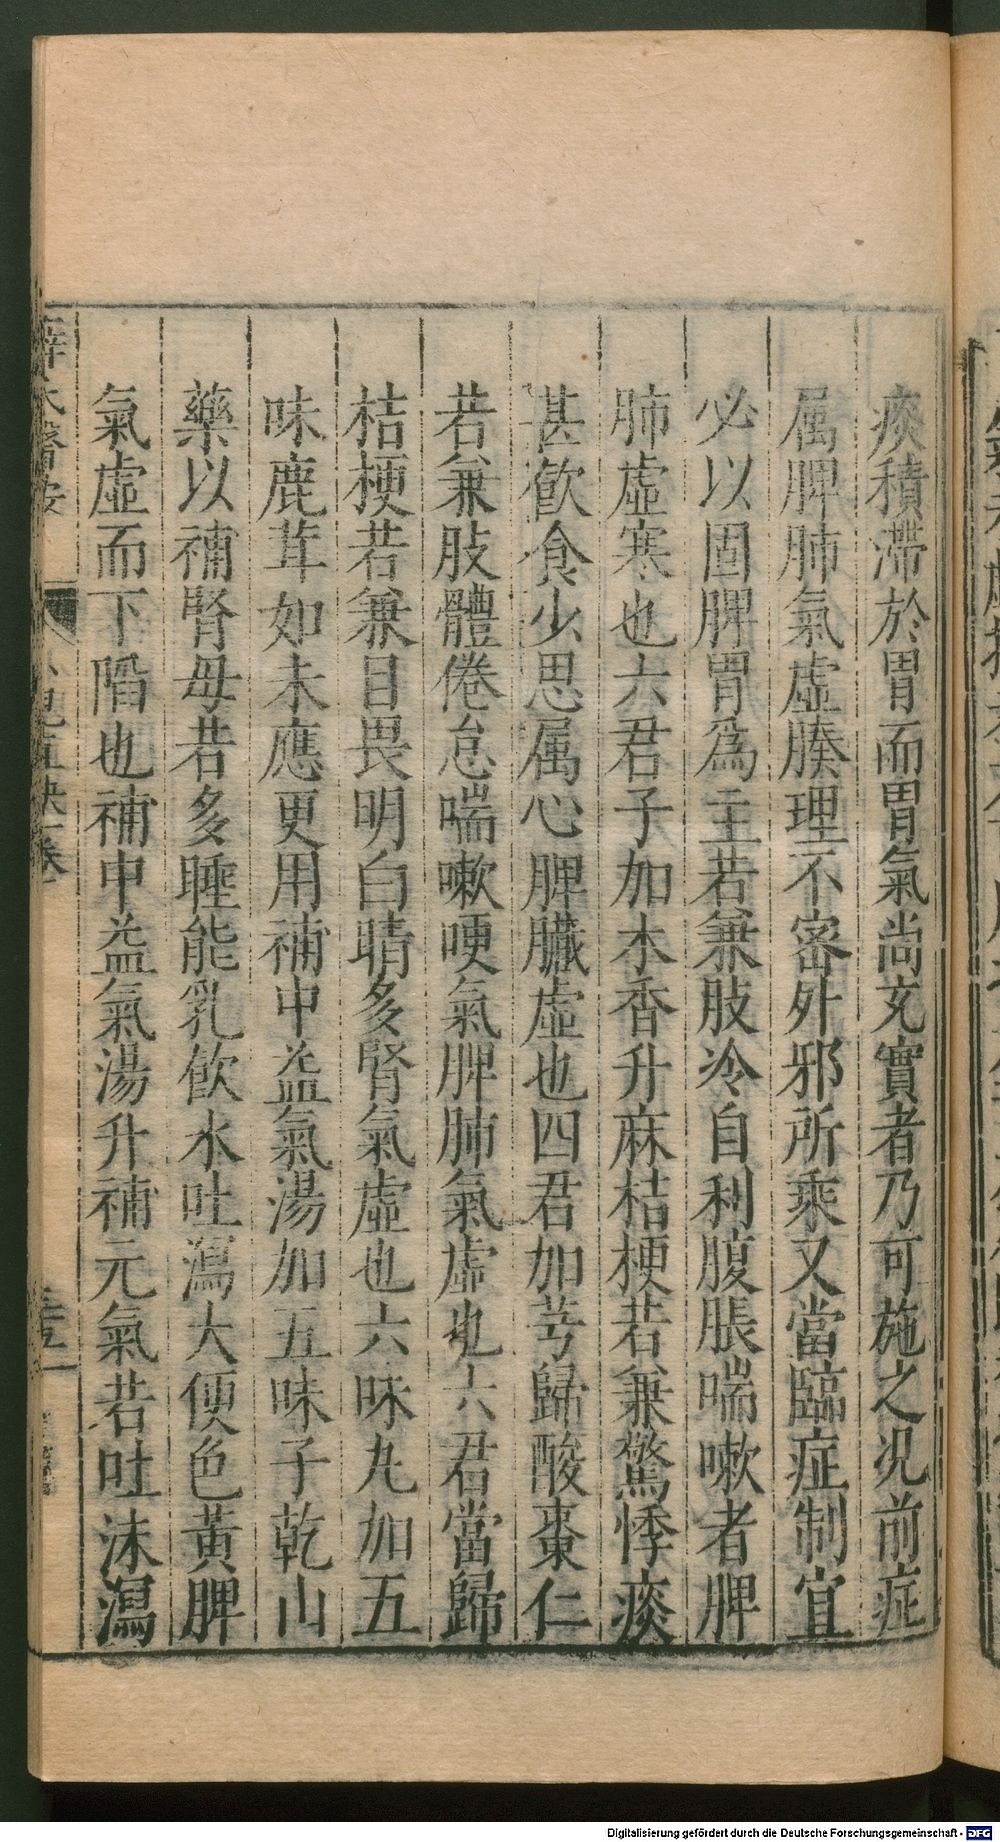 痰積滯於胃而胃氣尚充實者乃可施之况前症
属脾肺氣虛腠理不密外邪所乘又當臨症制宜
必以固脾胃爲主若兼肢冷自利腹脹喘嗽者脾
肺虛寒也六君子加木香升麻桔梗若兼驚悸痰
甚飲食少思属心脾臟虛也四君加芎歸酸棗仁
若兼肢體倦怠喘嗽哽氣脾肺氣虛也六君當歸
桔梗若兼目畏明白睛多腎氣虛也六味丸加五
味鹿茸如未應更用補中益氣湯加五味子乾山
藥以補腎毋若多睡能乳飲水吐瀉大便色黃脾
氣虛而下陷也補中益氣湯升補元氣若吐沫瀉
薛氏醫按
小兒直訣一卷
Digitalisierung gefördert durch die Deutsche Forschungsgemeinschaft - DFG